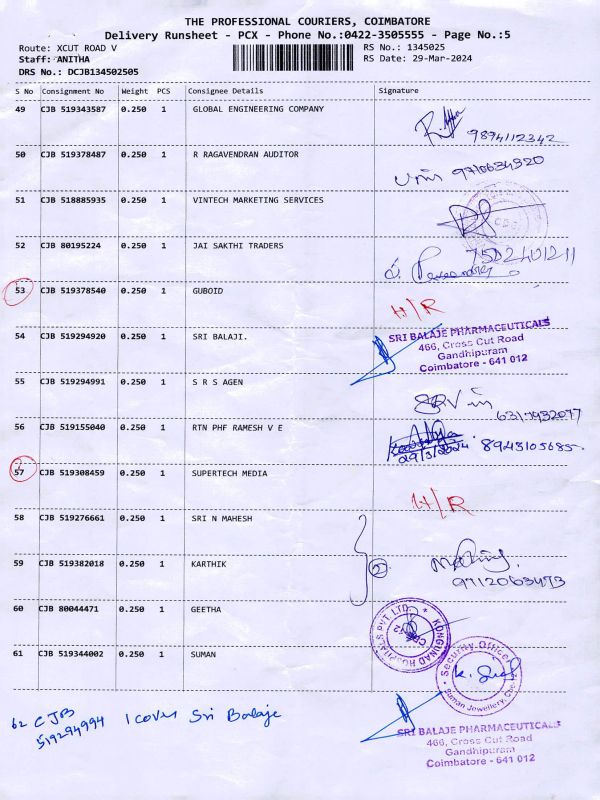 THE PROFESSIONAL COURIERS, COIMBATORE
Delivery Runsheet - PCX - Phone No.:0422-3505555 - Page No.:5
Route: XCUT ROAD V RS No.: 1345025
Staff: ANITHA RS Date: 29-Mar-2024
DRS No.: DCJB134502505
S No Consignment No Weight PCS Consignee Details Signature
49 CJB 519343587 0.250 1 GLOBAL ENGINEERING COMPANY
9894112342
50 CJB 519378487 0.250 1 R RAGAVENDRAN AUDITOR
9710634320
51 CJB 518885935 0.250 1 VINTECH MARKETING SERVICES
52 CJB 80195224 0.250 1 JAI SAKTHI TRADERS
7502401211
53 CJB 519378540 0.250 1 GUBOID
H/R
54 CJB 519294920 0.250 1 SRI BALAJI.
SRI BALAJE PHARMACEUTICALS
466, Cross Cut Road
Gandhipuram
Coimbatore - 641 012
55 CJB 519294991 0.250 1 S R S AGEN
56 CJB 519155040 0.250 1 RTN PHF RAMESH V E
29/3/2024 8943105685.
57 CJB 519308459 0.250 1 SUPERTECH MEDIA
H/R
58 CJB 519276661 0.250 1 SRI N MAHESH
2
59 CJB 519382018 0.250 1 KARTHIK
9712063473
60 CJB 80044471 0.250 1 GEETHA
KONGUNAD HOSPITALS PVT LTD.
61 CJB 519344002 0.250 1 SUMAN
Security Officer
Suman Jewellery,
62 CJB
519294994 1 cover Sri Balaje
SRI BALAJE PHARMACEUTICALS
466, Cross Cut Road
Gandhipuram
Coimbatore - 641 012